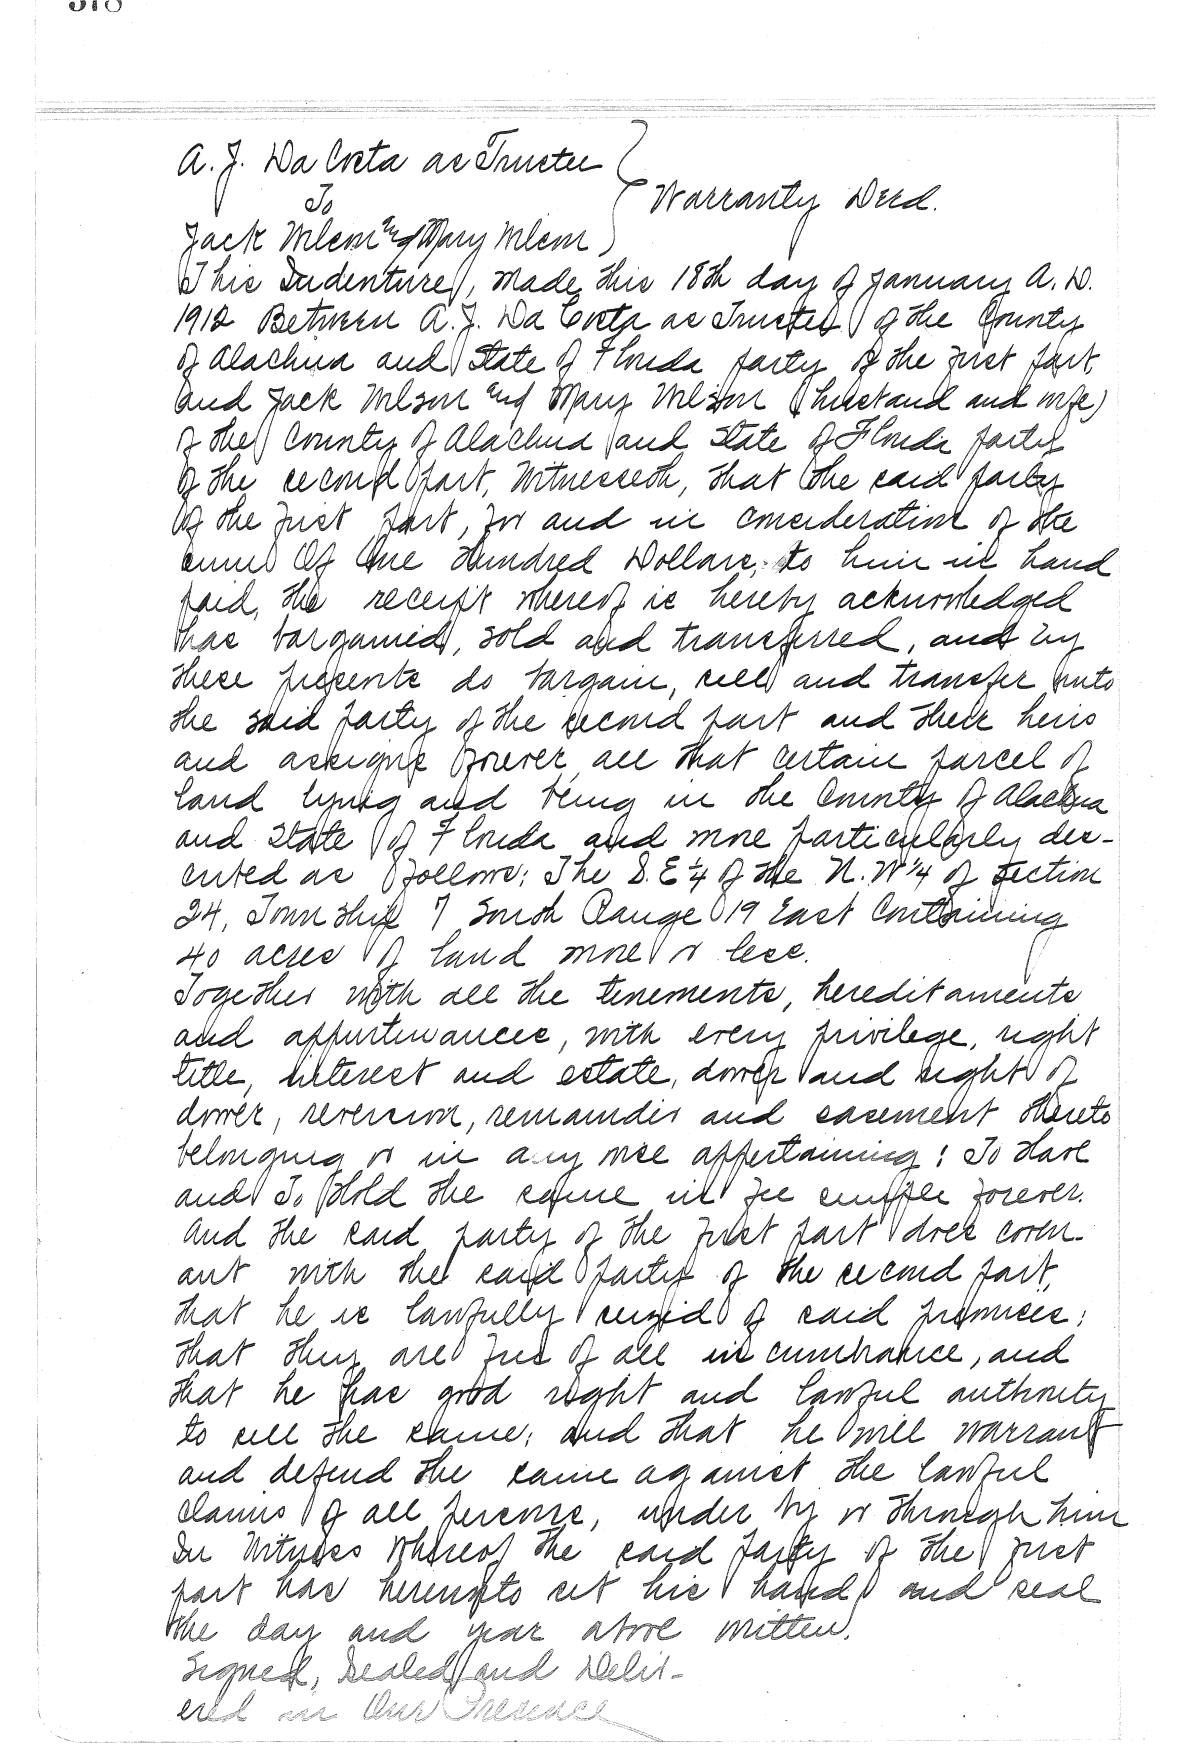 378
A. J. Da Costa as Trustee
To
Warranty Deed.
Jack Wilson and Mary Wilson
This Indenture, made this 18th day of January A. D.
1912 Between A. J. Da Costa as Trustee of the County
of Alachua and State of Florida party of the first part
and Jack Wilson and Mary Wilson (husband and wife)
of the County of Alachua and State of Florida party
of the second part, Witnesseth, that the said party
of the first part, for and in consideration of the
sum Of One Hundred Dollars, to him in hand
paid, the receipt whereof is hereby acknowledged
has bargained, sold and transferred, and by
these presents do bargain, sell and transfer unto
the said party of the second part and their heirs
and assigns forever all that certain parcel of
land lying and being in the County of Alachua
and State of Florida and more particularly des-
cribed as follows: The S.E ¼ of the N.W ¼ of Section
24, Township 7 South Range 19 East Containing
40 acres of land more or less.
Together with all the tenements, hereditaments
and appurtenances, with every privilege, right
title, interest and estate, dower and right of
dower, reversion, remainder and easement thereto
belonging or in any wise appertaining: To Have
and To Hold the same in fee simple forever.
And the said party of the first part does coven-
ant with the said party of the second part,
that he is lawfully seized of said premises;
that they are free of all incumbrance, and
that he has good right and lawful authority
to sell the same; and that he will warrant
and defend the same against the lawful
claims of all persons, under by or through him
In Witness Whereof the said party of the first
part has hereunto set his hand and seal
the day and year above written.
Signed, Sealed and Deliv-
ered in Our Presence